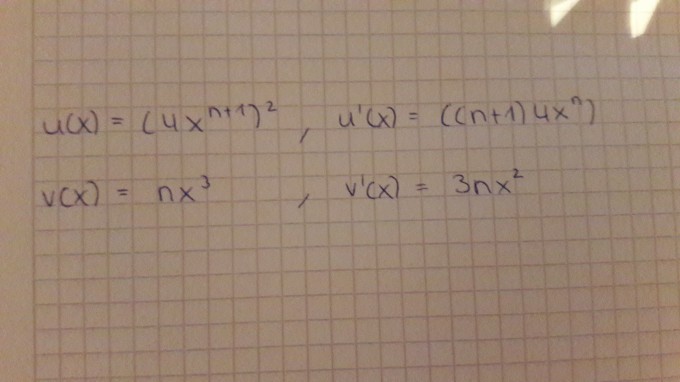 u(x) = (4x^{n+1})^2 , u'(x) = ((n+1)4x^n)
v(x) = nx^3 , v'(x) = 3nx^2